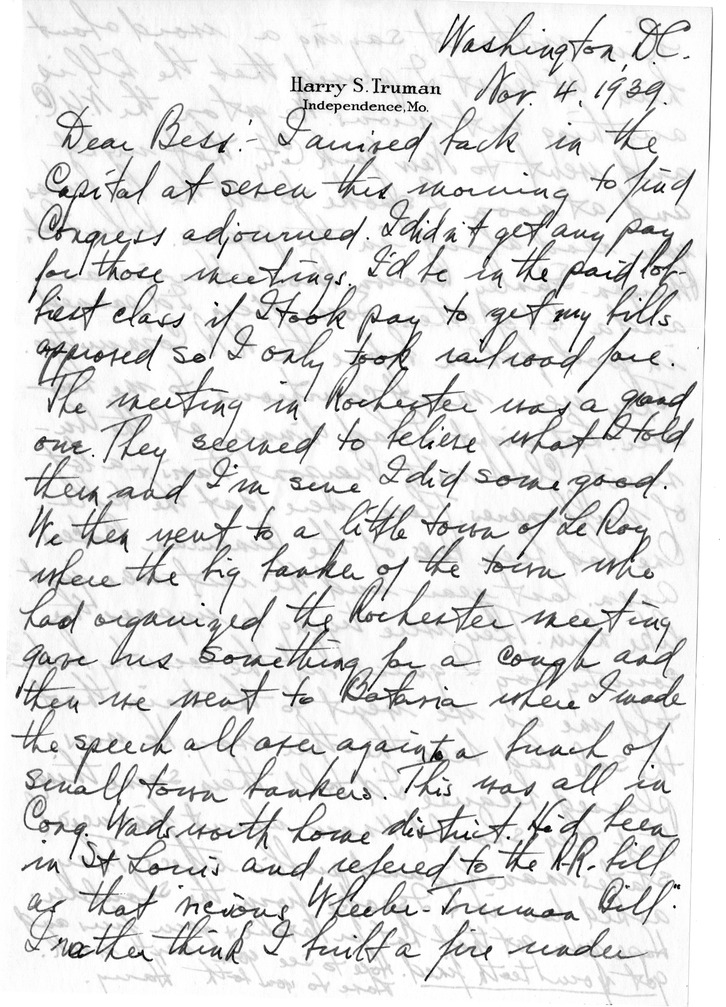 Washington, D.C.
Harry S. Truman
Independence, Mo.
Nov. 4, 1939.
Dear Bess:- I arrived back in the
Capital at seven this morning to find
Congress adjourned. I didn't get any pay
for those meetings. I'd be in the paid lob-
biest class if I took pay to get my bills
approved so I only took railroad fare.
The meeting in Rochester was a good
one. They seemed to believe what I told
them and I'm sure I did some good.
We then went to a little town of Le Roy
where the big banker of the town who
had organized the Rochester meeting
gave us something for a cough and
then we went to Batavia where I made
the speech all over again to a bunch of
small town bankers. This was all in
Cong. Wadsworth home district. He'd been
in St Louis and refered to the R.R. bill
as that "vicious Wheeler-Truman Bill".
I rather think I built a fire under